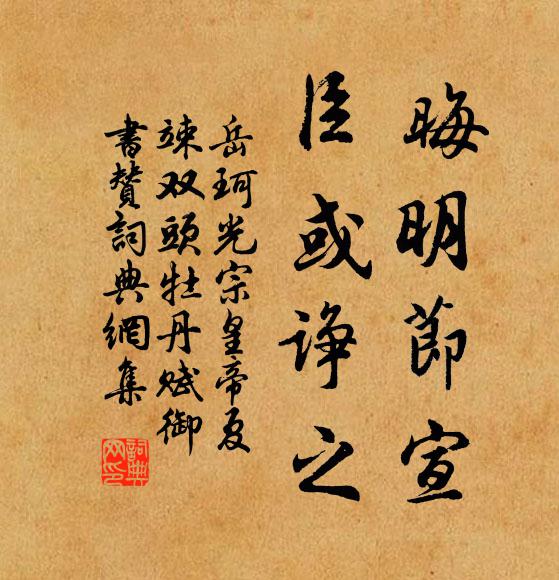 晦明節宣
臣或諍之
岳珂光宗皇帝夏
竦双頭牡丹赋御
書贊詞典網集
詞典
网印